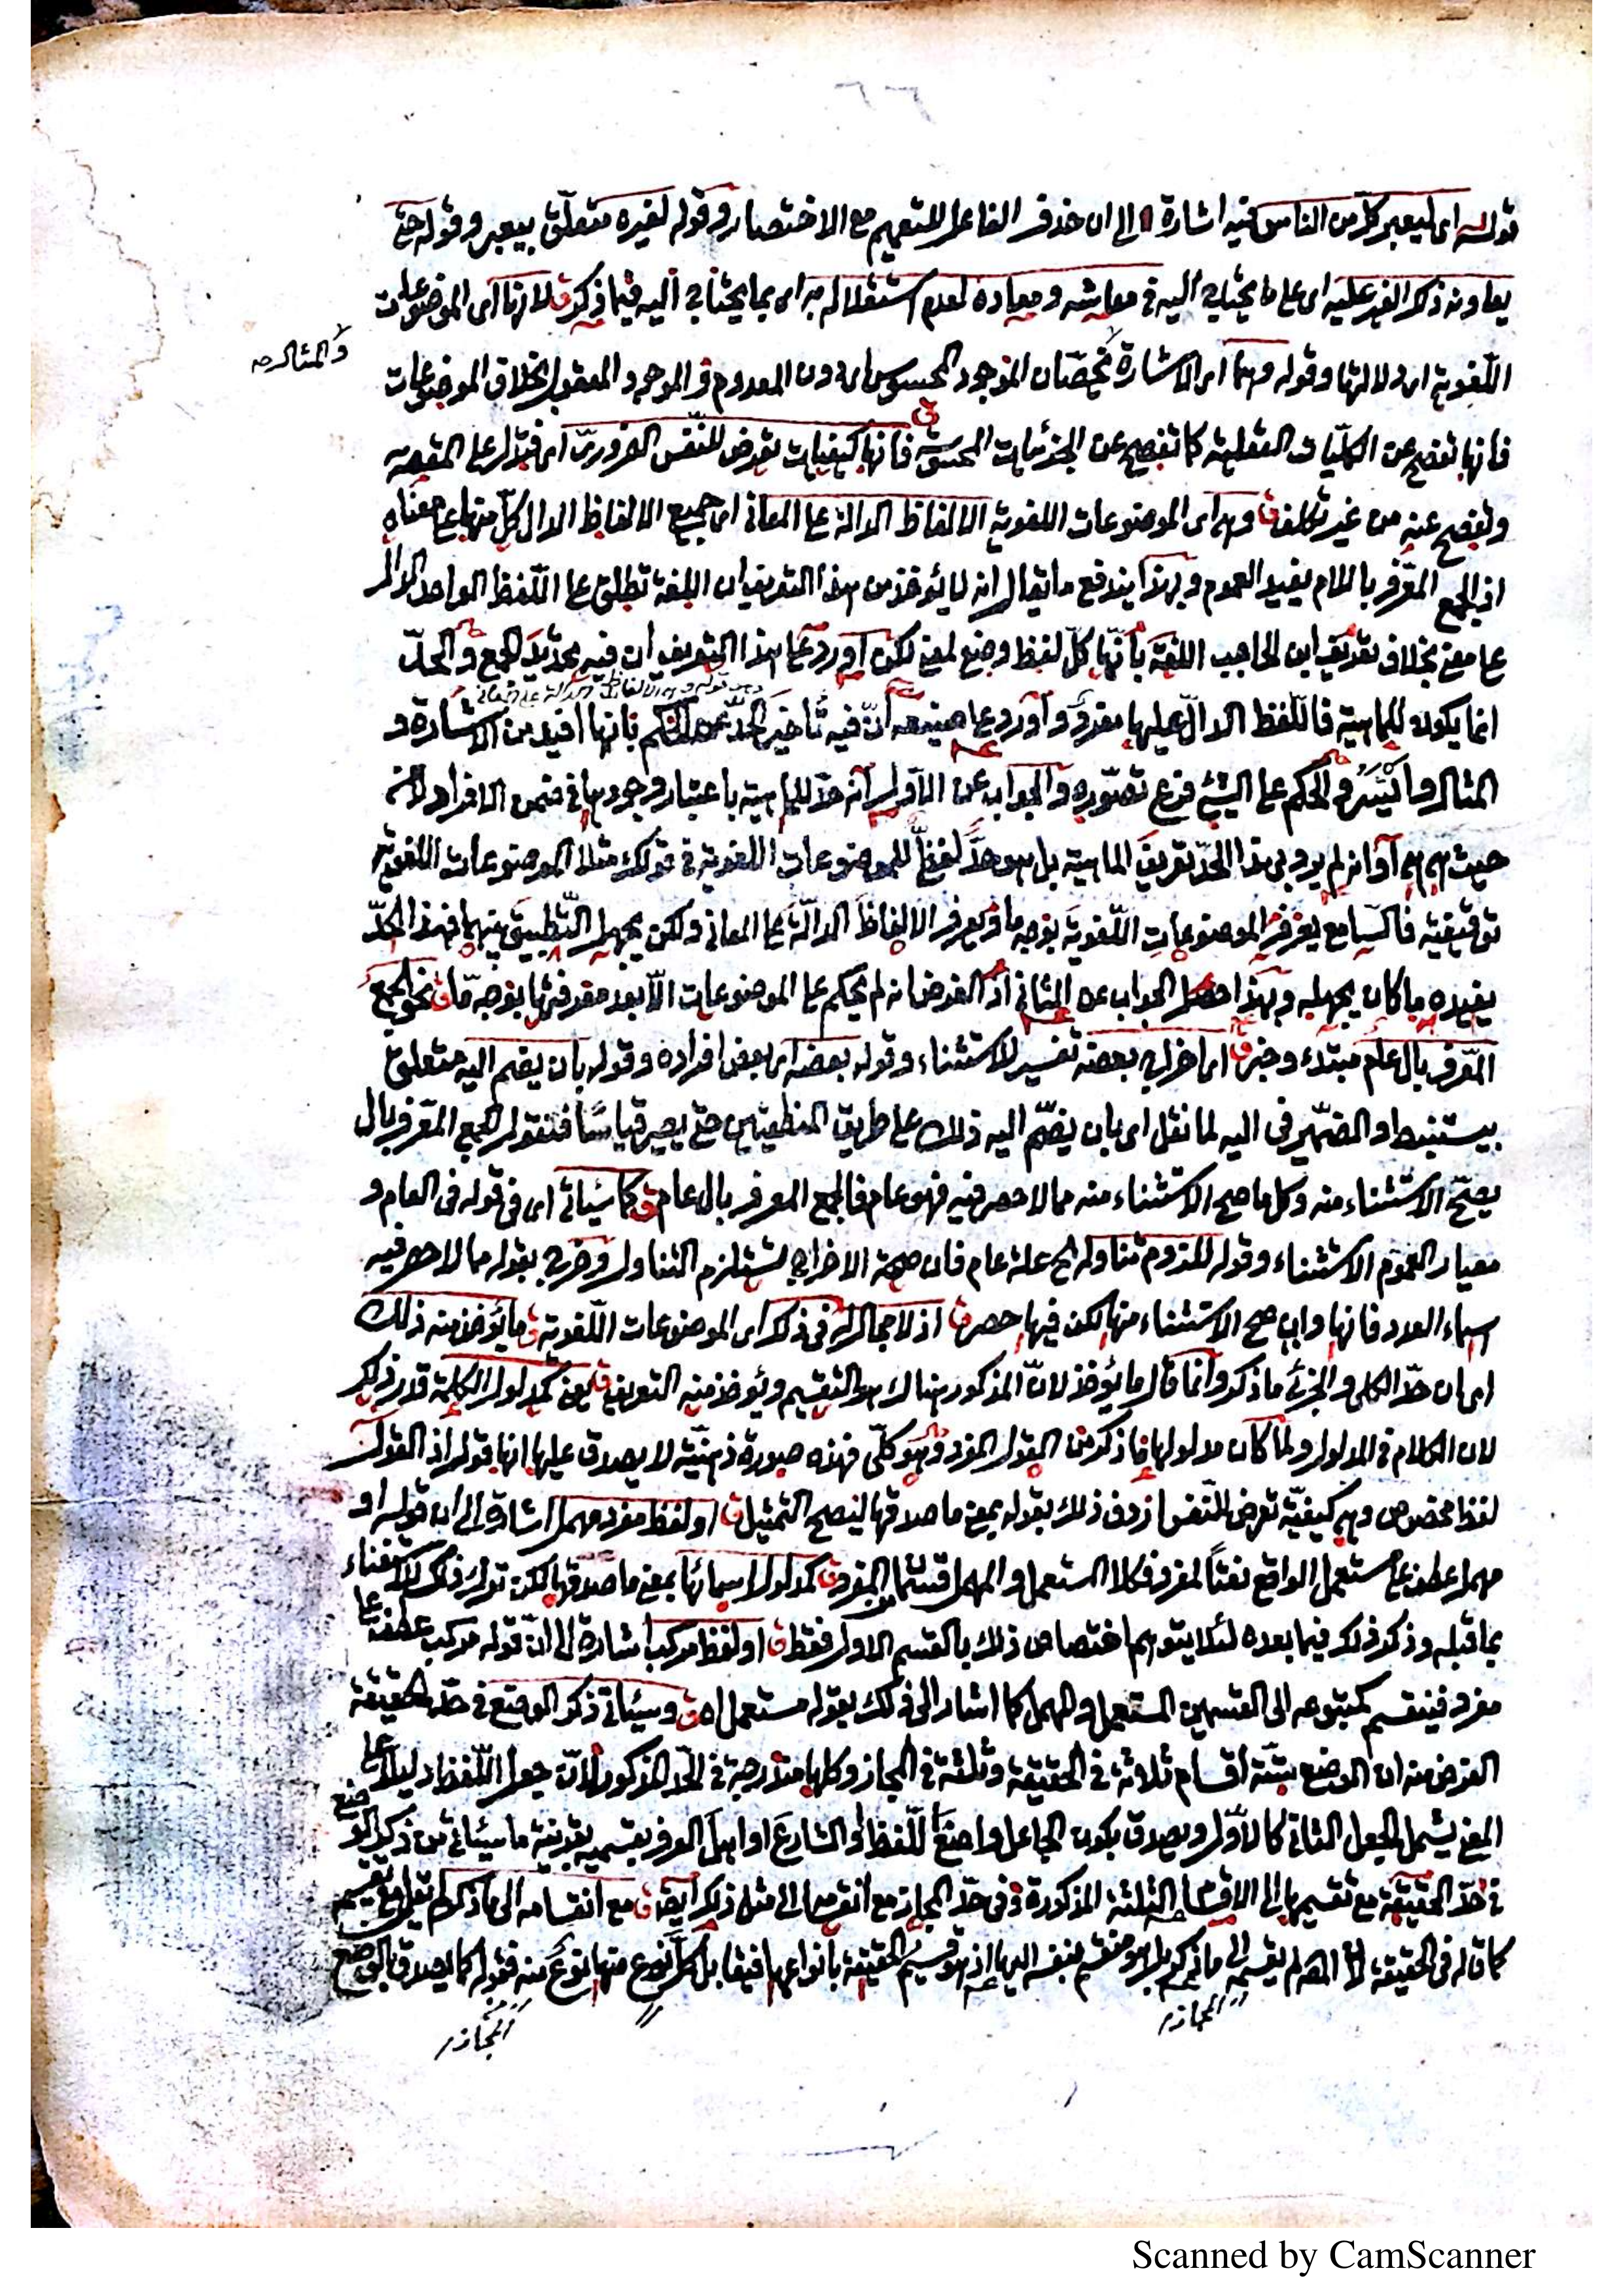 قوله اى ليعبر كل من الناس فيه اشارة الى ان حذف الفاعل للتعميم مع الاختصار وقوله لغيره متعلق بيعبر وقوله حتى
يعاونه ذكر الغير عليه اى على ما يحتاج اليه فى معاشه ومعاده لعدم استقلاله به اى بما يحتاج اليه فيما ذكر ق لانها اى الموضوعات
والمثال صح
اللغوية اى دلالتها وقوله وهما اى الاشارة تخصان الموجود المحسوس اى دون المعدوم و الموجود المعقول بخلاف الموضوعات
فانها تفصح عن الكليات العقلية كما تفصح عن الجزئيات المحسوسة ق فانها كيفيات تعرض للنفس الضرورى اى فتدل على المقصد
وتفصح عنه من غير تكلف ق وهى اى الموضوعات اللغوية الالفاظ الدالة على المعانى اى جميع الالفاظ الدال كل منها على معناه
اذ الجمع المعرف باللام يفيد العموم وبهذا يندفع ما يقال انه لا يؤخذ من هذا التعريف ان اللغة تطلق على اللفظ الواحد الدال
على معنى بخلاف تعريف ابن الحاجب اللغة بانها كل لفظ وضع لمعنى لكن اورد على هذا التعريف ان فيه تحديد الجمع والحد
وهى قوله وهى الالفاظ الدالة على المعانى
انما يكون للماهية فاللفظ الدال عليها مفرد واورد على صنيعه ان فيه تأخير الحد عن الحكم بانها افيد من الاشارة و
المثال وأيسر والحكم على الشئ فرع تصوره والجواب عن الاول انه حد للماهية باعتبار وجودها فى ضمن الافراد لا من
حيث هى هى او انه لم يرد بهذا الحد تعريف الماهية بل هو حد لفظى للموضوعات اللغوية فى قولك مثلا الموضوعات اللغوية
توقيفية فالسامع يعرف الموضوعات اللغوية بوجه ما ويعرف الالفاظ الدالة على المعانى ولكن يجهل التطبيق بينهما فهذا الحد
يفيده ما كان يجهله وبهذا حصل الجواب عن الثانى اذ الغرض انه لم يحكم على الموضوعات الا بعد معرفتها بوجه ما ق نحو الجمع
المعرف بال عام مبتدء وخبر ق اى اخراج بعضه تفسير للاستثناء وقوله بعضه اى بعض افراده وقوله بان يضم اليه متعلق
بيستنبط او الضمير فى اليه لما نقل اى بان يضم اليه ذلك على طريق المنطقيين حتى يصير قياسا فنقول الجمع المعرف بال
يصح الاستثناء منه وكل ما صح الاستثناء منه مما لا حصر فيه فهو عام فالجمع المعرف بال عام ق كما سيأتى اى فى قوله فى العام و
معيار العموم الاستثناء وقوله للزوم تناوله الخ علة عام فان صحة الاخراج تستلزم التناول وخرج بقوله مما لا حصر فيه
اسماء العدد فانها وان صح الاستثناء منها لكن فيها حصر ق اذ لا مجال له فى ذلك اى الموضوعات اللغوية ق ما يؤخذ منه ذلك
اى ان حد الكلى والجزئى ما ذكر وانما قال ما يؤخذ لان المذكور هناك هو التقسيم ويؤخذ منه التعريف ق يعنى كمدلول الكلمة قدر ذلك
لان الكلام فى المدلول ولما كان مدلولها ما ذكر من القول المفرد وهو كلى فهذه صورة ذهنية لا يصدق عليها انها قول اذ القول
لفظ مخصوص وهى كيفية تعرض للنفس اردف ذلك بقوله بمعنى ما صدقها ليصح التمثيل ق او لفظ مفرد مهمل اشارة الى ان قوله او
مهمل عطف على مستعمل الواقع نعتا لمفرد فكلا المستعمل والمهمل قسما المفرد ق كمدلول اسمائها بمعنى ما صدقها لكن ترك ذلك للاستغناء
بما قبله وذكر ذلك فيما بعده لئلا يتوهم اختصاص ذلك بالقسم الاول فقط ق او لفظ مركب اشارة الى ان قوله مركب عطف على
مفرد فينقسم كمتبوعه الى القسمين المستعمل والمهمل كما اشار الى ذلك بقوله مستعمل اه ق وسيأتى ذكر الوضع فى حد الحقيقة
الغرض منه ان الوضع ستة اقسام ثلاثة فى الحقيقة وثلثة فى المجاز وكلها مندرجة فى الحد المذكور لان جعل اللفظ دليلا على
المعنى يشمل الجعل الثانى كالاول ويصدق بكون الجاعل واضع اللفظ او الشارع او اهل العرف بقسميه بقرينة ما سيأتى من ذكر الوضع
فى حد الحقيقة مع تقسيمها الى الاقسام الثلثة المذكورة وفى حد المجاز مع انقسامه الى مثل ذلك ايضا ق مع انقسامه الى ما ذكر لم يقل مع تقسيم
كما قال فى الحقيقة لان المص لم يقسمه الى ما ذكر بل هو منقسم بنفسه اليها اذ هو قسيم الحقيقة بانواعها فيقابل كل نوع منها نوع منه فقوله كما يصدق بالوضع
المجاز
المجاز
Scanned by CamScanner